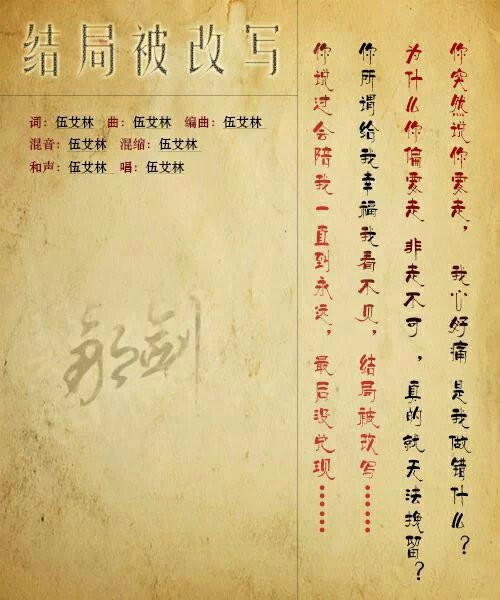 结局被改写
词：伍艾林 曲：伍艾林 编曲：伍艾林
混音：伍艾林 混缩：伍艾林
和声：伍艾林 唱：伍艾林
你突然说你要走， 我心好痛 是我做错什么？
为什么你偏要走 非走不可， 真的就无法挽留？
你所谓给我幸福我看不见，结局被改写……
你说过会陪我一直到永远， 最后没兑现……